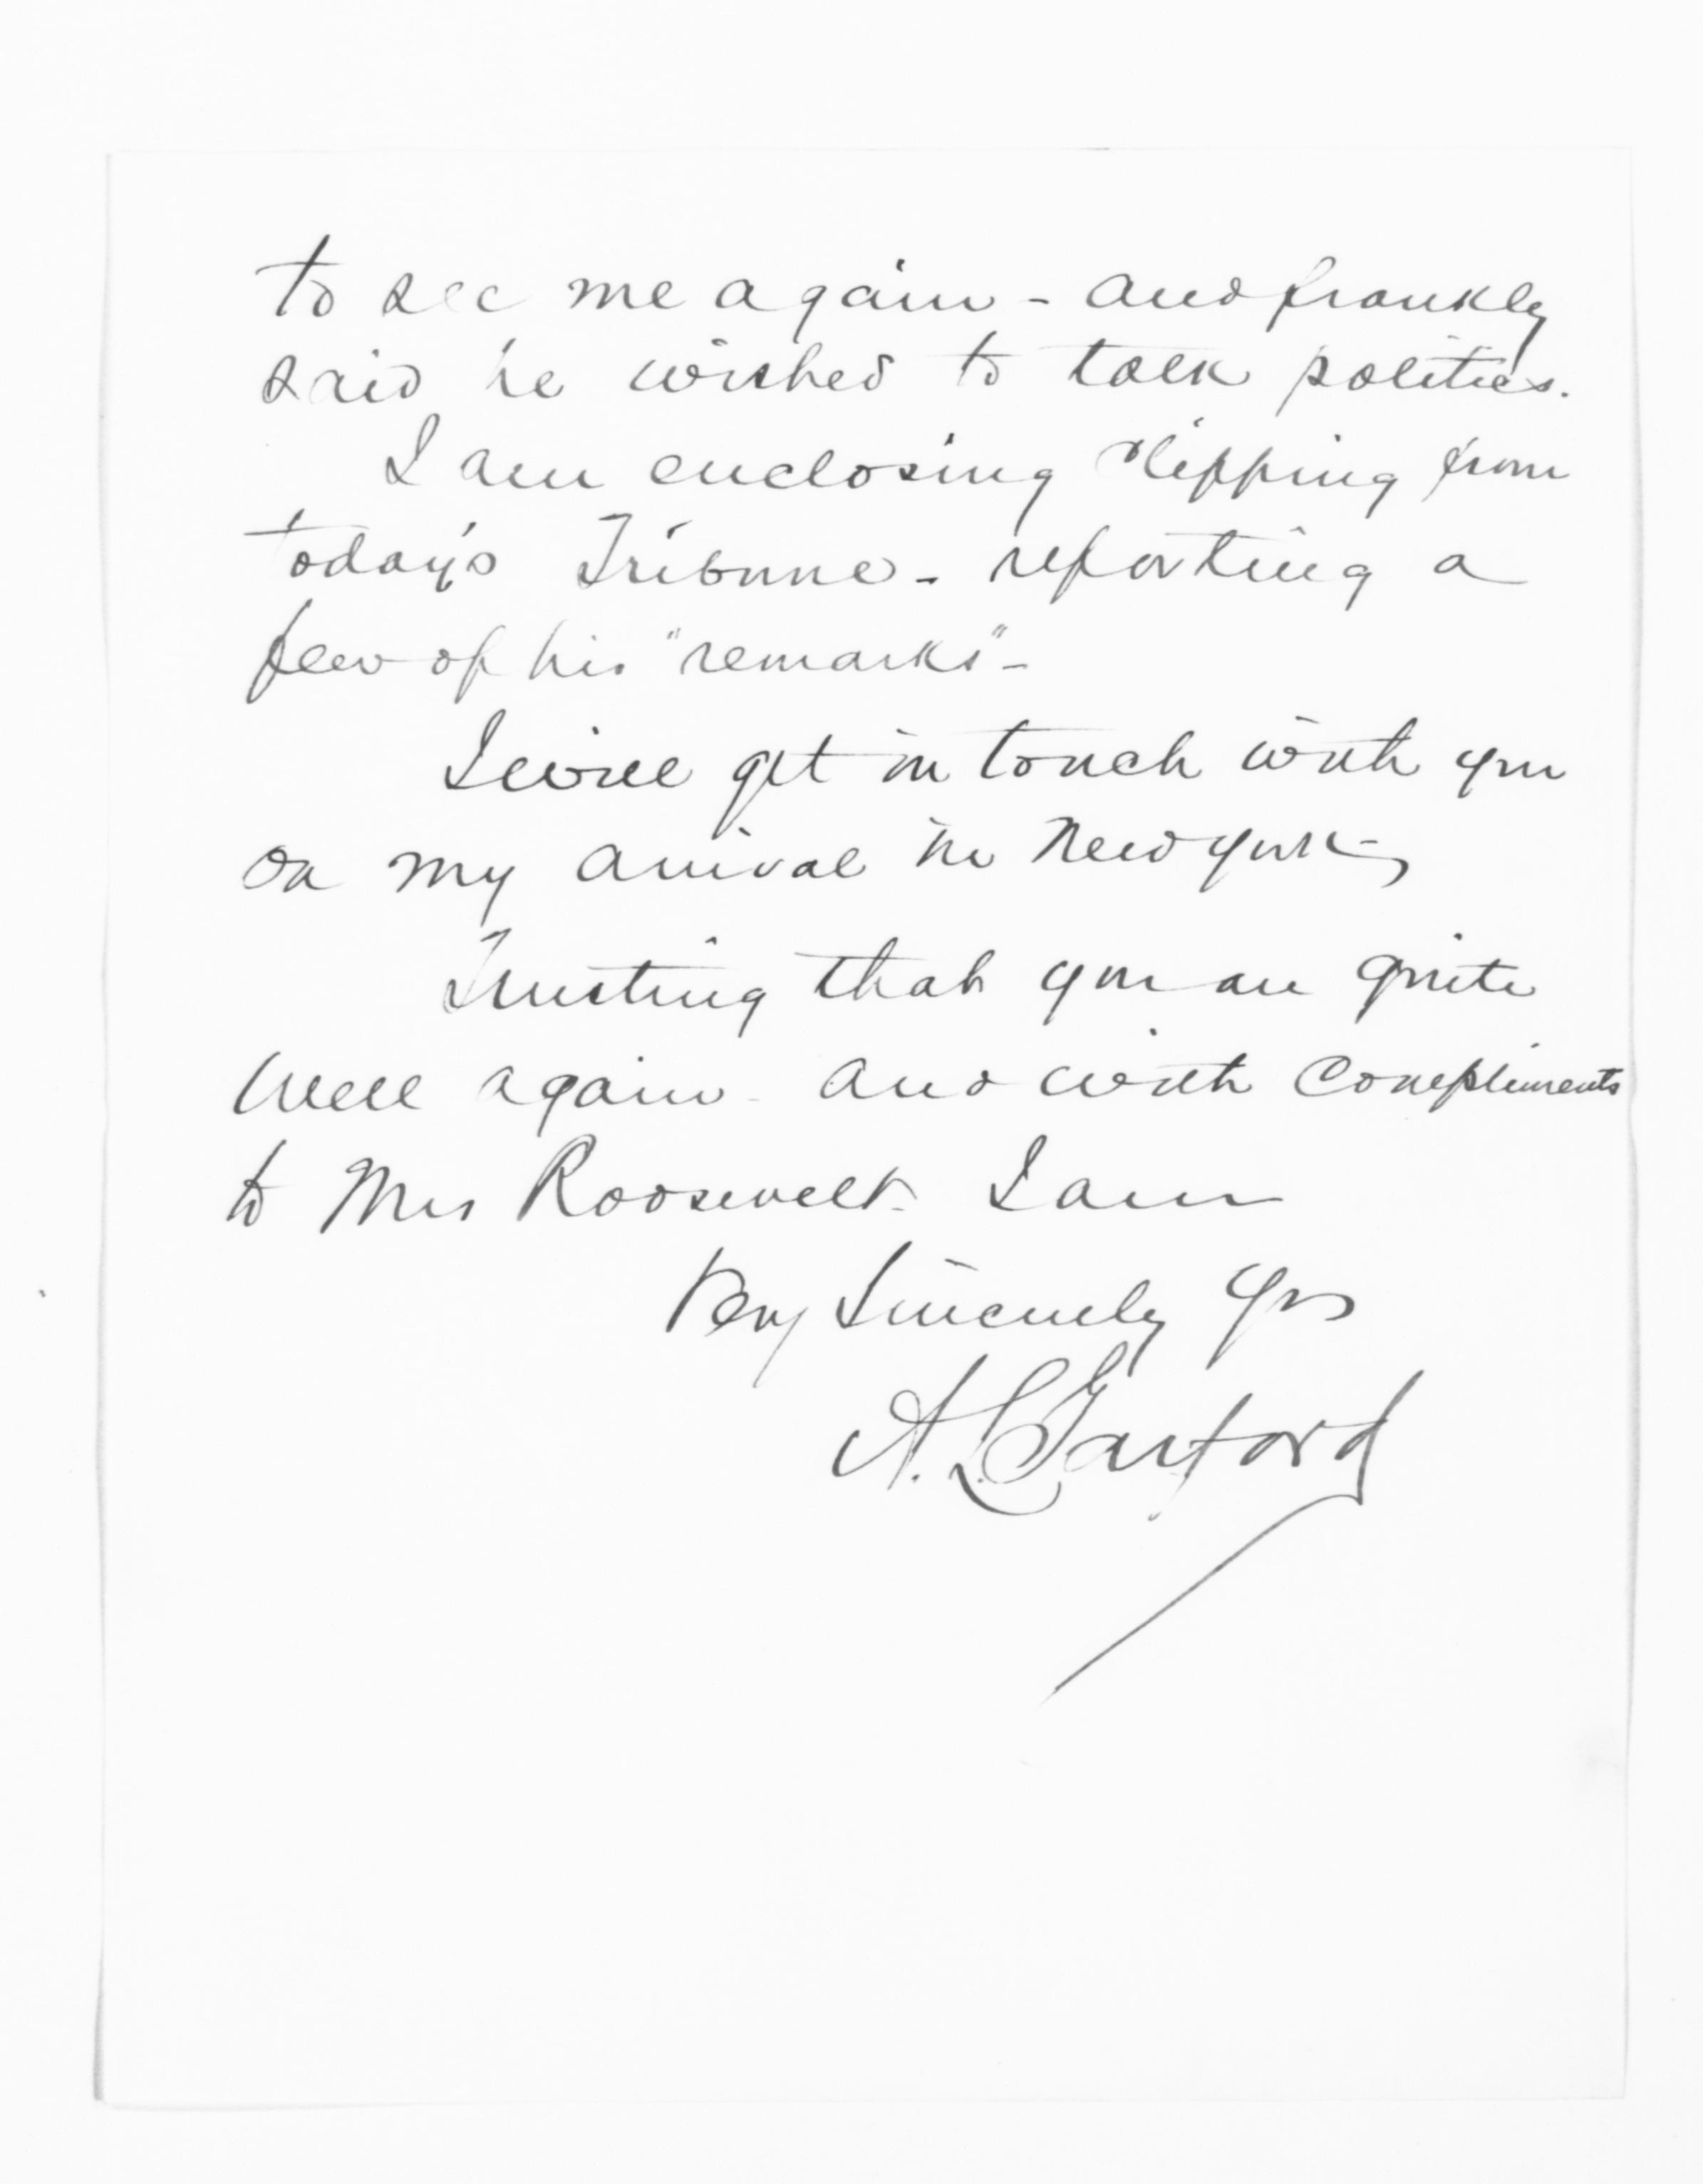 to see me again - and frankly
said he wished to talk politics.
I am enclosing clipping from
today's Tribune - reporting a
few of his "remarks" -
I will get in touch with you
on my arrival in New York -
Trusting that you are quite
well again - and with compliments
to Mrs Roosevelt - I am
Very Sincerely Yrs
A. L. Garford